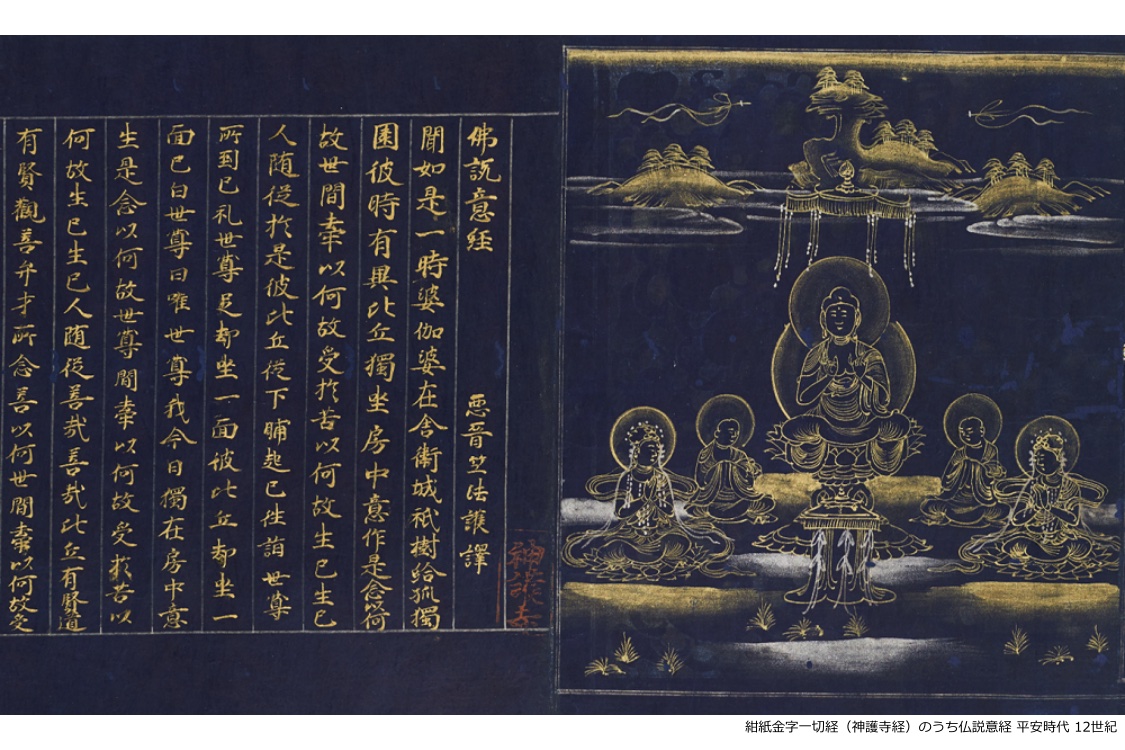 佛說意経
晉竺法護譯
聞如是一時婆伽婆在舍衛城祇樹給孤獨
園彼時有異比丘獨坐房中意作是念以何
故世間牽以何故受於苦以何故生已生已
人随従於是彼比丘従下晡起已往詣世尊
所到已礼世尊足却坐一面彼比丘却坐一
面已白世尊曰唯世尊我今日獨在房中意
生是念以何故世尊間牽以何故受於苦以
何故生已生已人随従善哉善哉比丘有賢道
有賢觀善弁才所念善以何世間牽以何故受
神護寺
紺紙金字一切経（神護寺経）のうち仏説意経 平安時代 12世紀